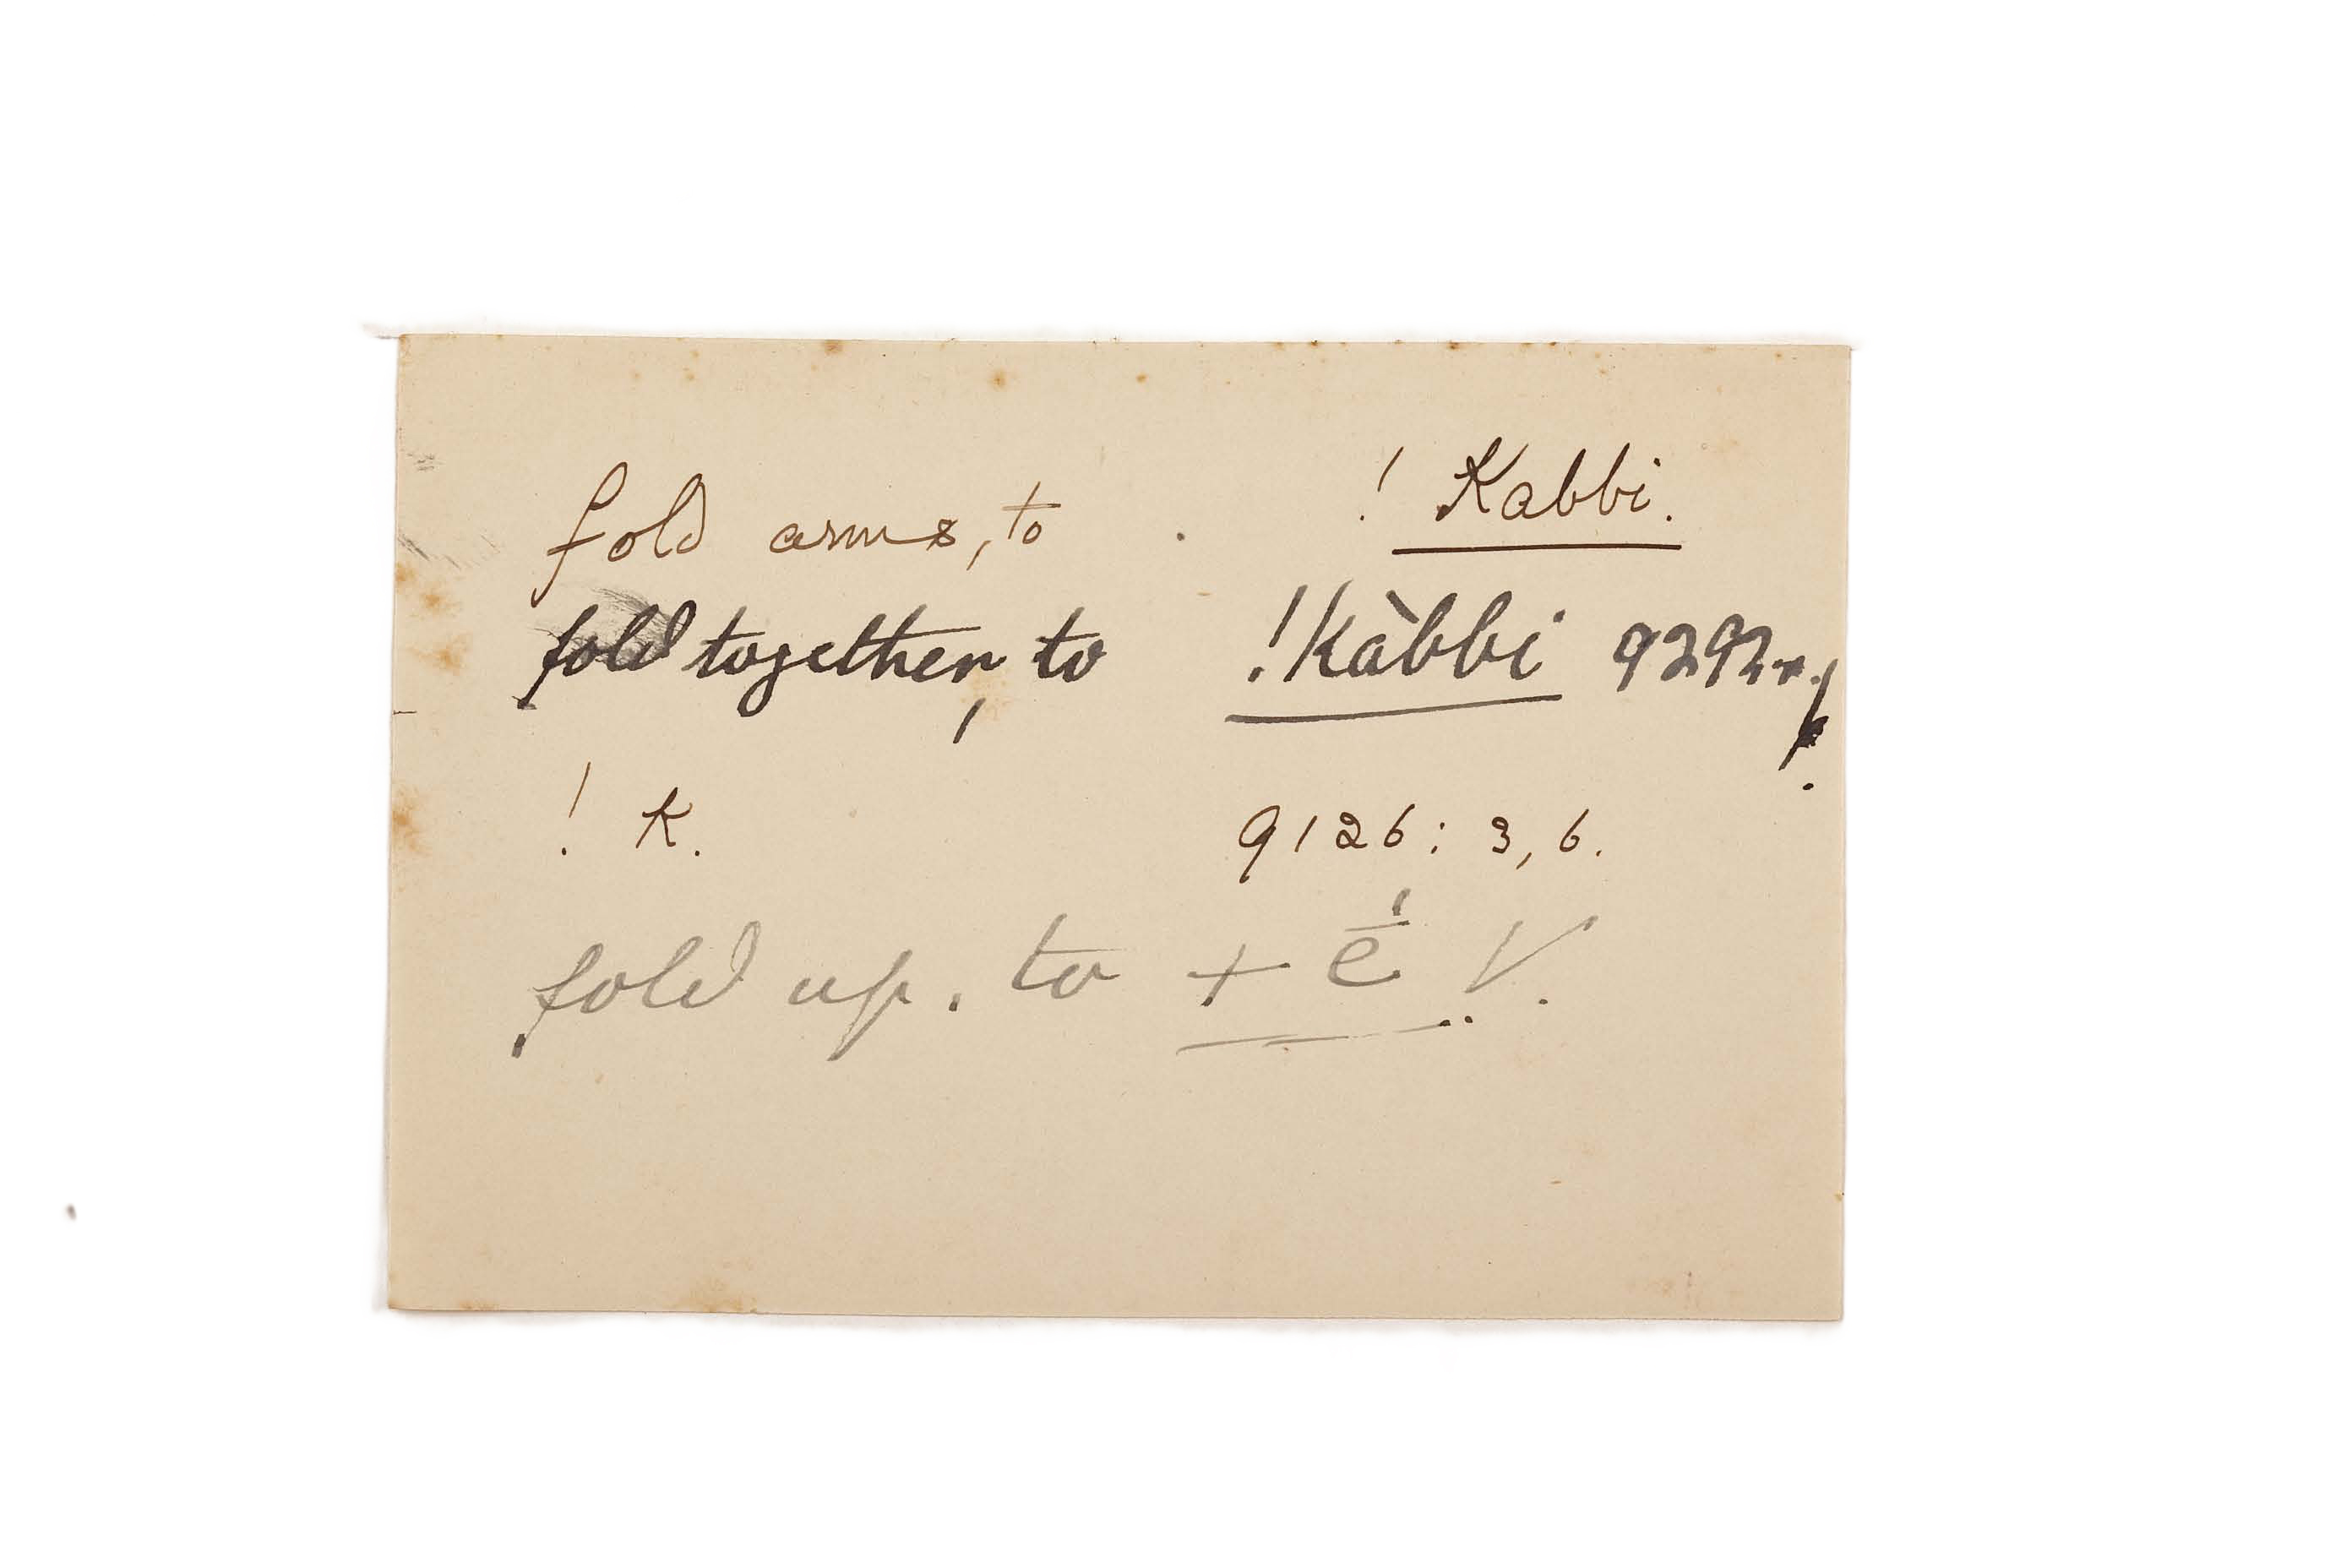 fold arms, to ! Kabbi.
fold together, to !kàbbi 9292
! K. 9126 : 3, 6.
fold up. to + é̄ V.